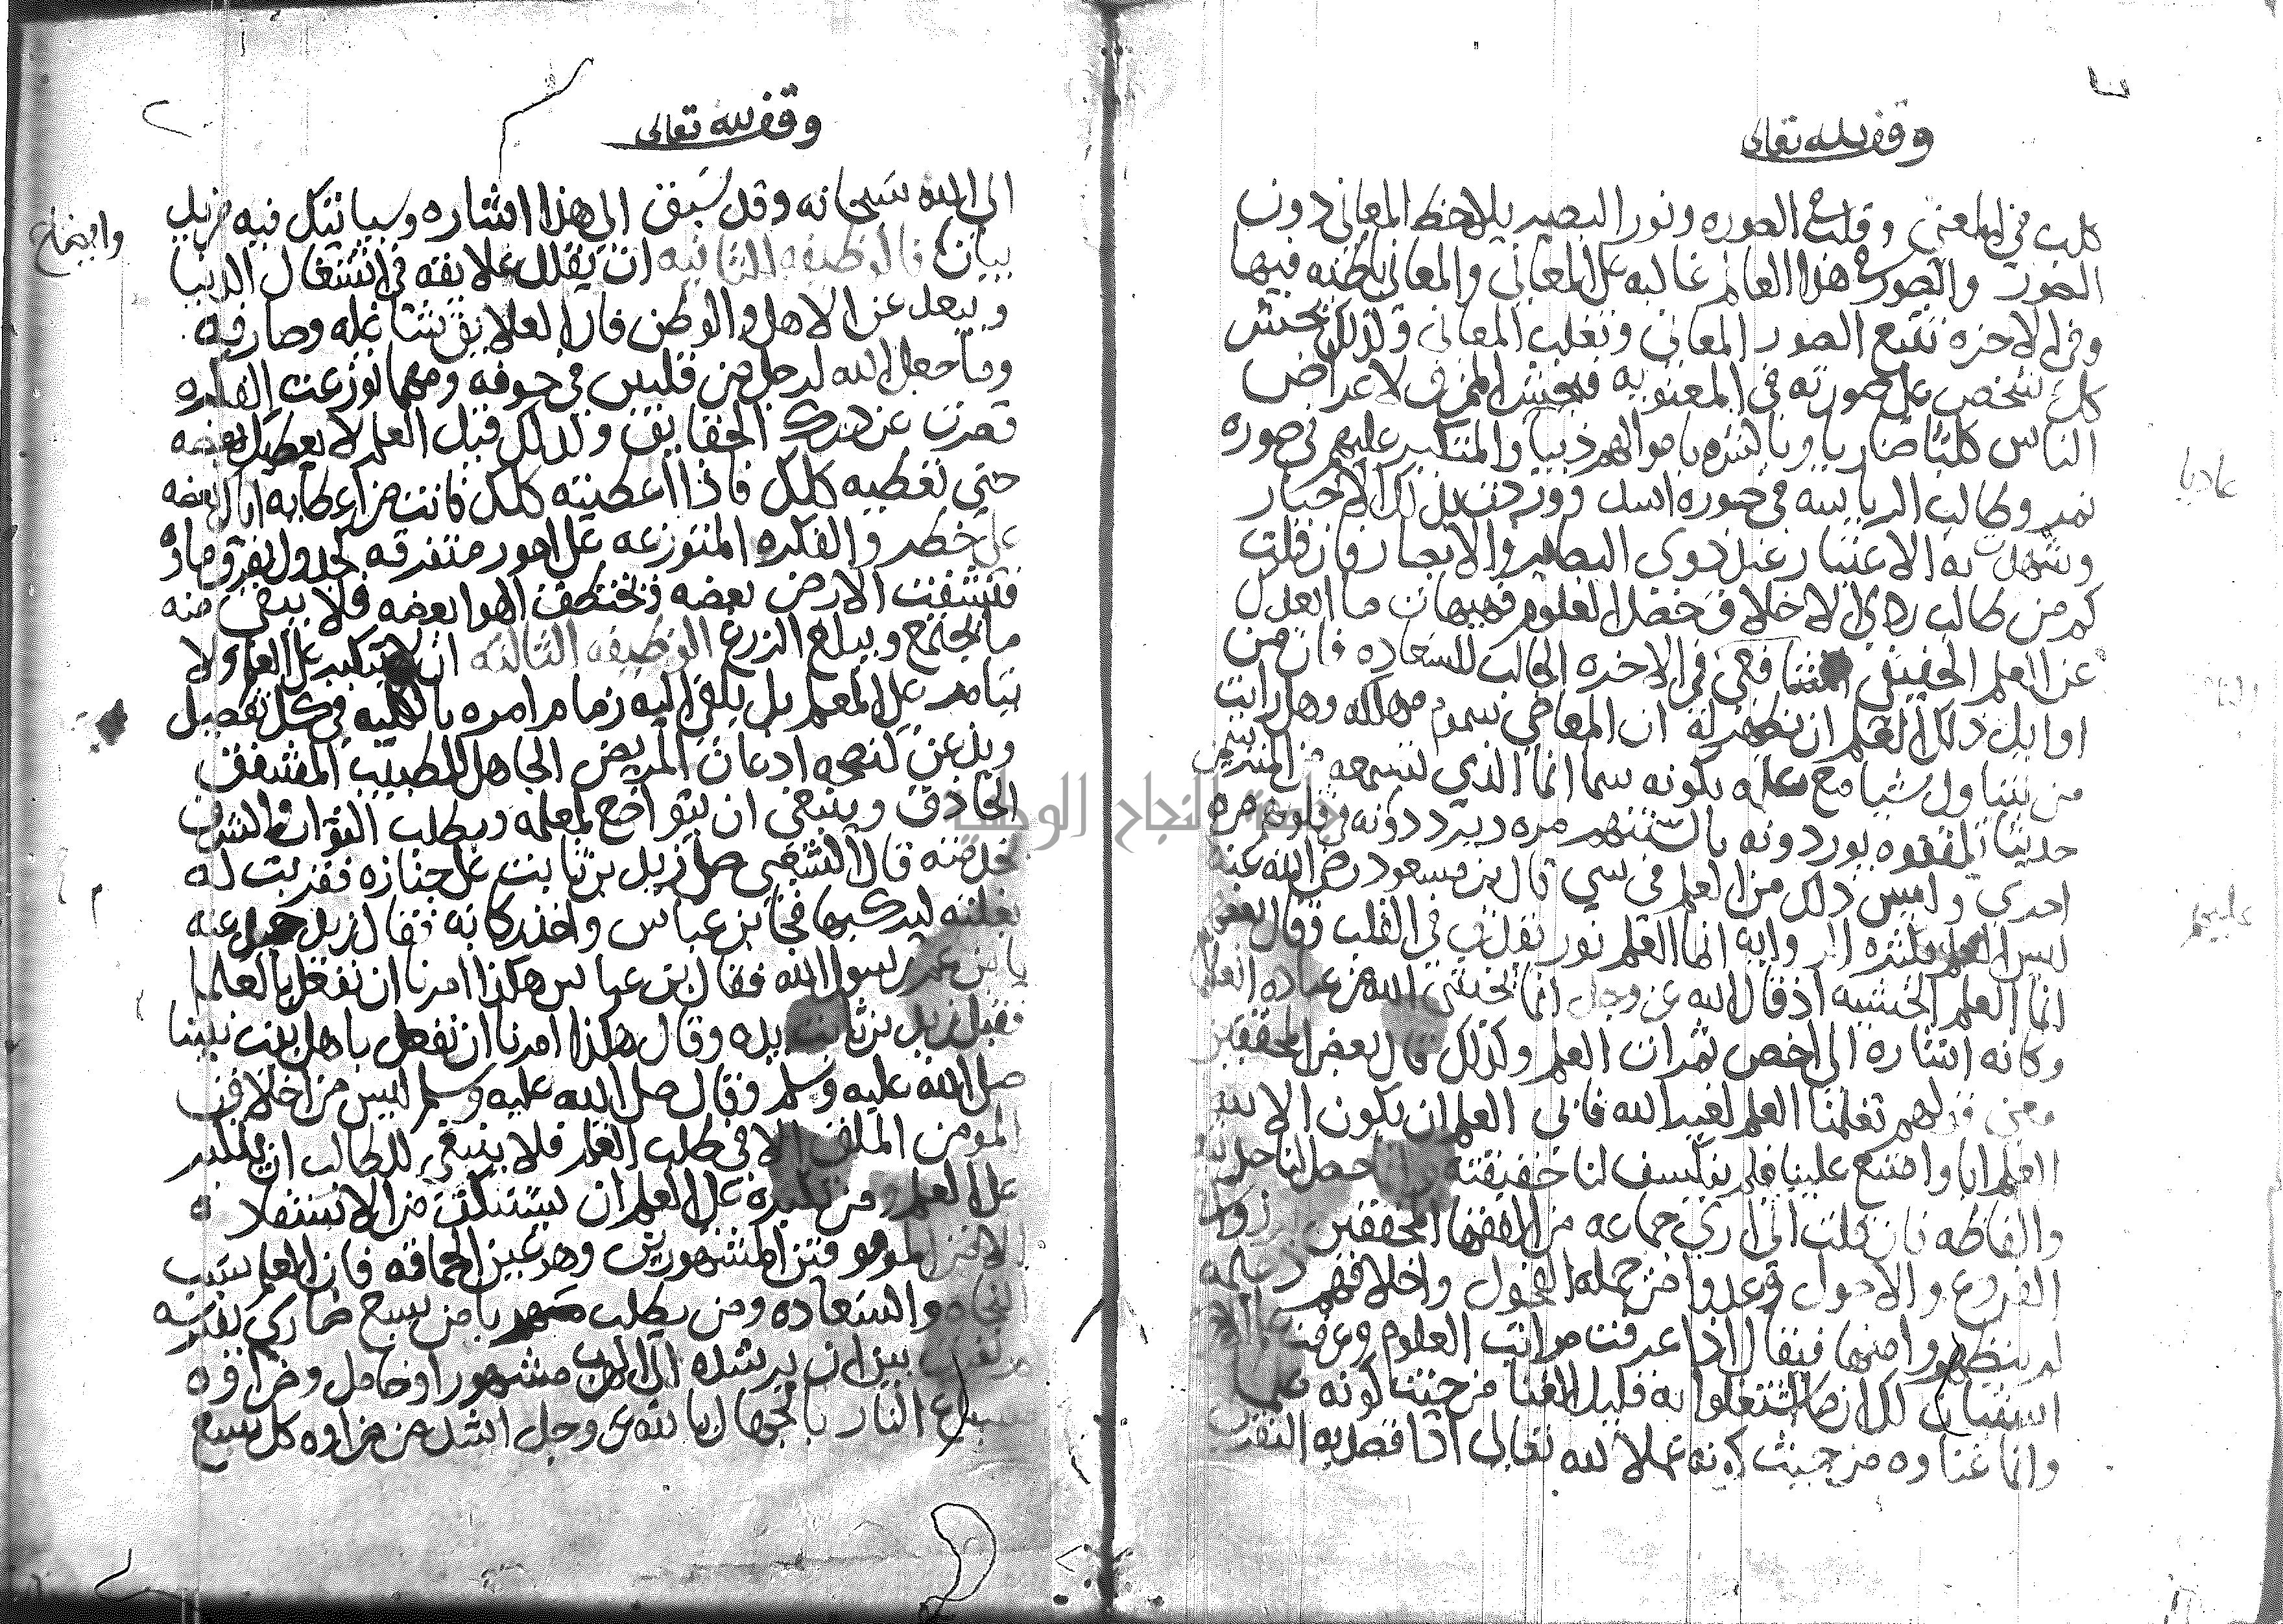 وقف لله تعالى
كلب في المعنى وقلت في الصوره ونور البصير يلاحظ المعاني دون
الصور والصور في هذا العالم غالبه على المعاني والمعاني باطنه فيها
وفي الاخره تتبع الصور المعاني وتغلب المعاني ولذلك يحشر
كل شخص على صورته في المعنويه فيحشر الممزق لاعراض
الناس كلبا ضاريا وبالشره باموالهم ذيبا والمتكبر عليهم في صوره
عاديا
نمر وطالب الرياسه في صوره اسد ووردت بذلك الاخبار
وشهد به الاعتبار عند ذوي البصاير والابصار فان قلت
كم من طالب ردي الاخلاق حصل العلوم فهيهات ما ابعد
عن العلم الحقيقي النافع في الاخره الجالب للسعاده فان من
اوايل ذلك العلم ان يظهر له ان المعاصي سموم مهلكه وهل رايت
من يتناول شيا مع علمه بكونه سما انما الذي تسمعه من المترسمين
حديثا تلقفوه يوردونه بالسنتهم مره ويرددونه في قلوبهم مره
اخرى وليس ذلك من العلم في شي قال بن مسعود رضي الله عنه
ليس العلم بكثره الروايه انما العلم نور يقذف في القلب وقال بعضهم
انما العلم الخشيه اذ قال الله عز وجل انما يخشى الله من عباده العلما
وكانه اشاره الى اخص ثمرات العلم ولذلك قال بعض المحققين
معنى قولهم تعلمنا العلم لغير الله فابى العلم ان يكون الا لله
العلم ابا وامتنع علينا فلم ينكشف لنا حقيقته وانما حصل لنا حديثه
والفاظه فان قلت اني ارى جماعه من الفقها المحققين
الفروع والاصول وعدوا من جمله الفحول واخلاقهم ذميمه
لم يتطهروا منها فيقال اذا عرفت مراتب العلوم وعرفت علم الاخره
استبان لك ان ما اشتغلوا به قليل الغنا من حيث كونه علما
وانما غناوه من حيث كونه عملا لله تعالى اذا قصد به التقرب
وقف لله تعالى
الى الله سبحانه وقد سبق الى هذا اشاره وسياتيك فيه مزيد
بيان وايضاح فالوظيفه الثانيه ان يقلل علايقه في اشتغال الدنيا
ويبعد عن الاهل والوطن فان العلايق شاغله وصارفه
وما جعل الله لرجل من قلبين في جوفه ومهما توزعت الفكره
قصرت عن درك الحقايق ولذلك قيل العلم لا يعطيك بعضه
حتى تعطيه كلك فاذا اعطيته كلك فانت من اعطايه اياك بعضه
على خطر والفكره المتوزعه على امور متفرقه كجدول تفرق ماوه
فتنشفت الارض بعضه وتختطف الهوا بعضه فلا يبقى منه
ما يجتمع ويبلغ الزرع الوظيفه الثالثه ان لا يتكبر على العلم ولا
يتامر على المعلم بل يلقي اليه زمام امره بالكليه في كل تفصيل
ويذعن لنصحه اذعان المريض الجاهل للطبيب المشفق
الحاذق وينبغي ان يتواضع لمعلمه ويطلب الثواب والشرف
بخدمته قال الشعبي صلى زيد بن ثابت على جنازه فقربت له
بغلته ليركبها فجا بن عباس واخذ ركابه فقال زيد خل عنه
يا بن عم رسول الله فقال بن عباس هكذا امرنا ان نفعل بالعلما
فقبل زيد بن ثابت يده وقال هكذا امرنا ان نفعل باهل بيت نبينا
صلى الله عليه وسلم وقال صلى الله عليه وسلم ليس من اخلاق
المومن الملق الا في طلب العلم فلا ينبغي للطالب ان يتكبر
على العلم ومن تكبره على العلم ان يستنكف من الاستفاده
الا من المرموقين المشهورين وهو عين الحماقه فان العلم سبب
النجاه والسعاده ومن يطلب مهربا من سبع ضاري يفترسه
لم يفرق بين ان يرشده الى الهرب مشهور او خامل وضراوه
سباع النار بالجهال بالله عز وجل اشد من ضراوه كل سبع